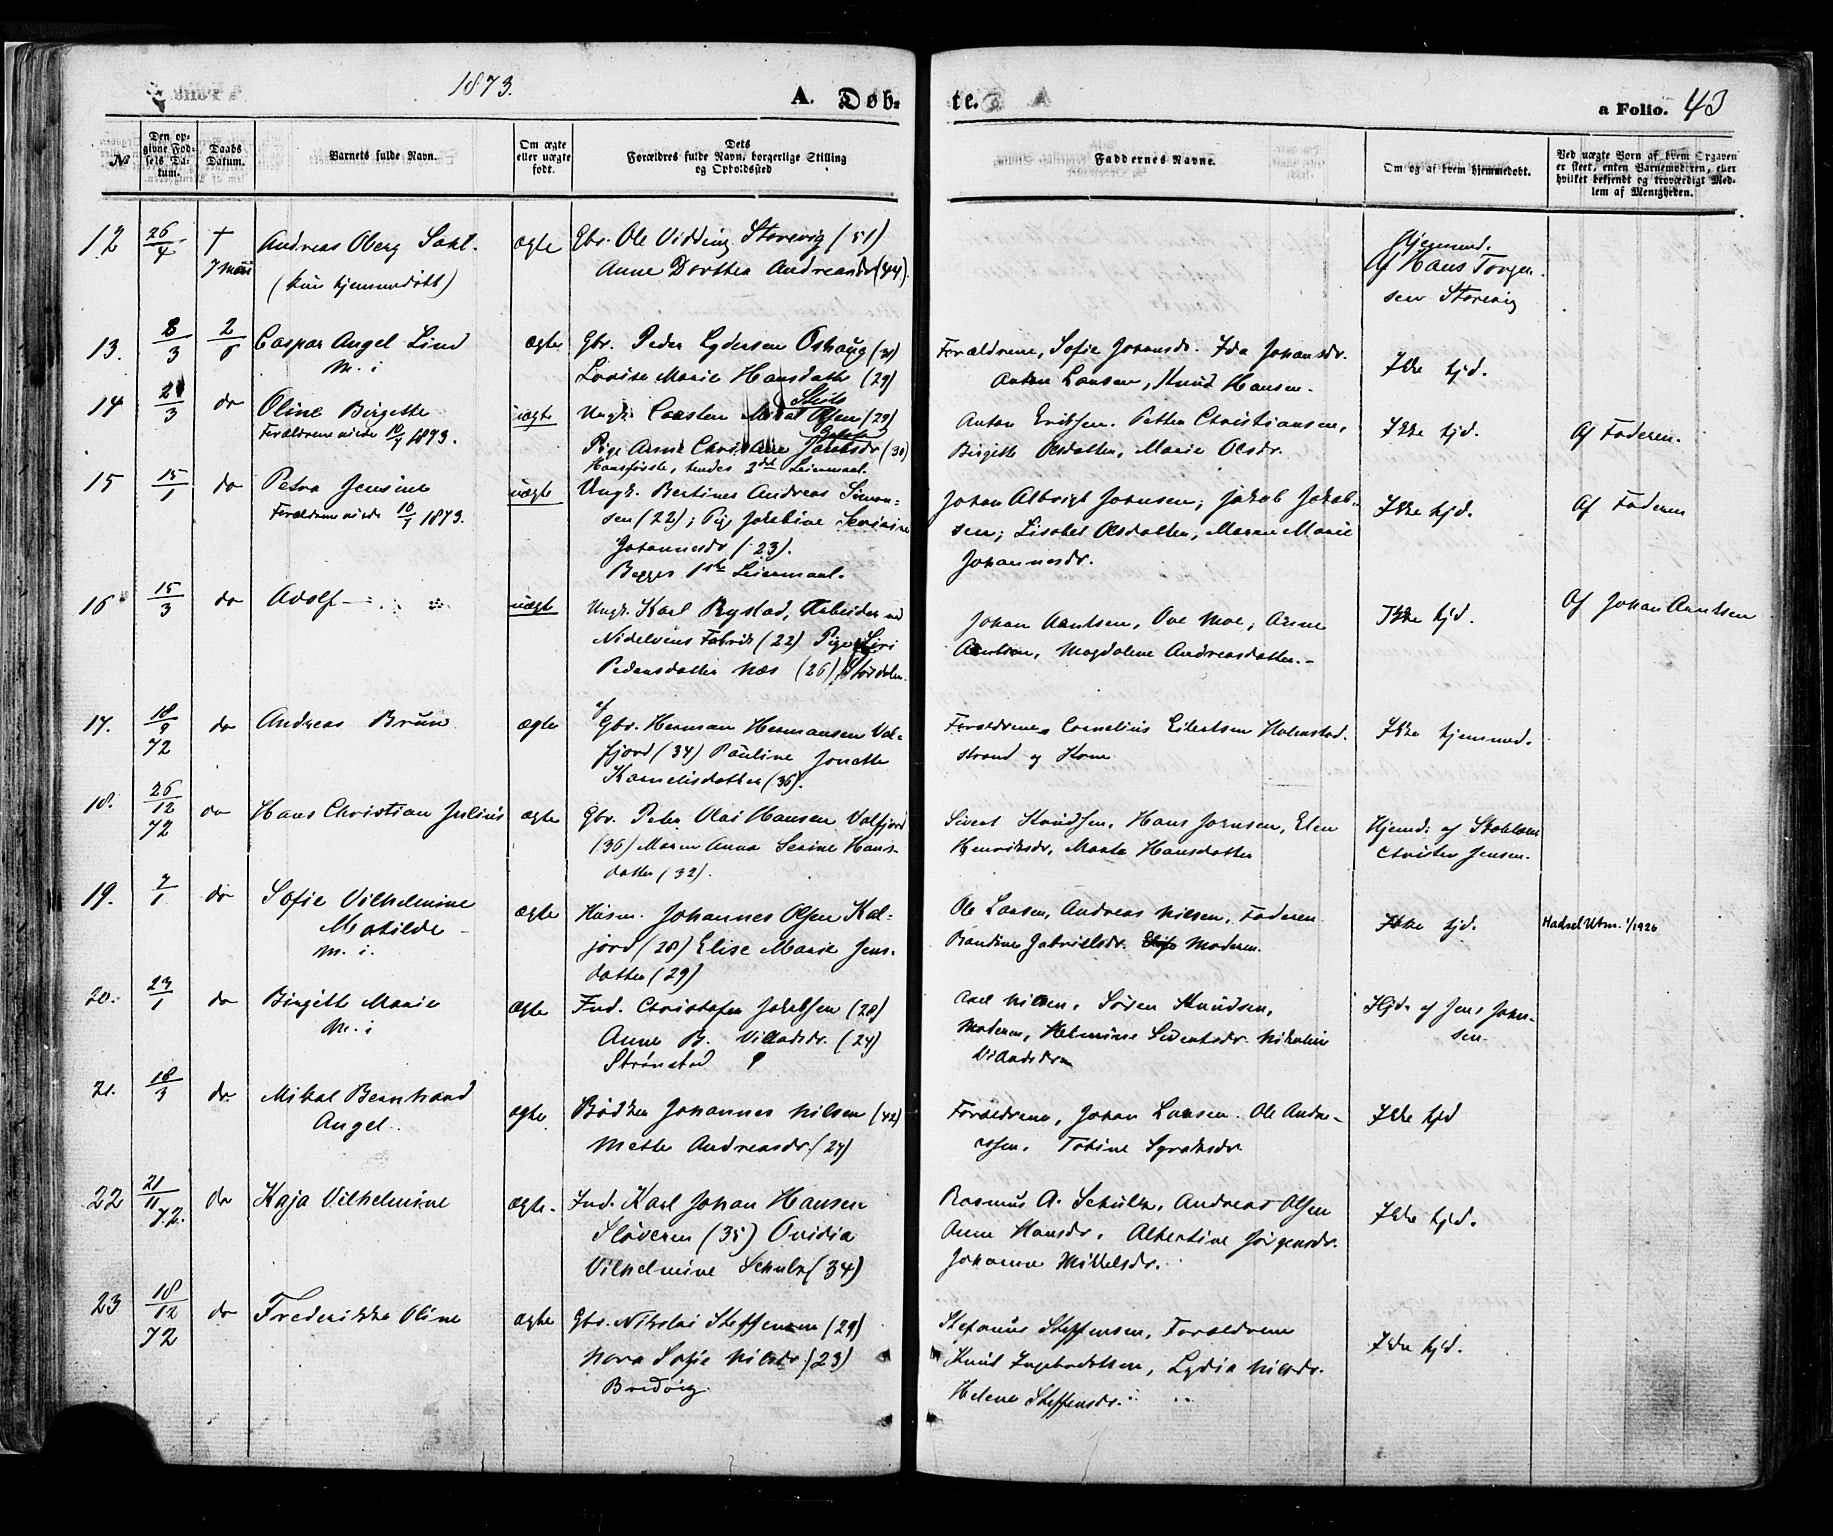 1873.
A. Døb-
te.
a Folio. 43
No
Den op-
givne Fød-
sels Da-
tum.
Daabs
Datum.
Barnets fulde Navn.
Om ægte
eller uægte
født.
Dets
Forældres fulde Navn, borgerlige Stilling
og Opholdssted
Faddernes Navne.
Om og af hvem hjemmedøbt.
Ved uægte Børn af hvem Opgaven
er skeet, enten Barnemoderen, eller
hvilket bekjendt og troværdigt Med-
lem af Menigheden.
12 26/4 †
Andreas Oberg
(kun hjemmedøbt)
ægte
Gbr. Ole Vidding Storevig (51)
Anne Dorthea Andreasdr (44).
Hjemmed.
Af Hans Torger-
sen Storevig
13. 8/3 2/6 Caspar Angel Lind
m. i
ægte
Gbr. Peder Lydersen Oshaug (31)
Lovise Marie Hansdatter (29)
Forældrene, Sofie Johansdr. Ida Johansdr.
Anton Larsen, Knud Hansen.
Ikke hjd.
14 21/3 do Oline Birgitte
Forældrene viede 10/7 1873.
uægte
Ungk. Carsten Olsen (29)
Pige Anne Christine Jakobsdr (30)
2det Leiermaal.
Anton Eriksen. Petter Christiansen,
Birgitte Olsdatter, Marie Olsdr.
Ikke hjd.
Af Faderen.
15 15/1 do Petra Jensine
Forældrene viede 10/7 1873.
uægte
Ungk. Bertines Andreas Simon-
sen (22); Pige Jakobine Severine
Johannesdr (23).
Begges 1ste Leiermaal.
Johan Albrigt Johnsen, Jakob Jakob-
sen; Lisabet Olsdatter, Maren Marie
Johannesdr.
Ikke hjd.
Af Faderen
16 15/3 do Adolf
uægte
Ungk. Karl Rystad, Arbeider ved
Nidelvens Fabrik (22) Pige Siri
Pedersdatter Næs (26) Stördalen.
Johan Arntsen, Ove Moe, Anne
Arntsen, Magdalene Andreasdatter.
Ikke hjd.
Af Johan Arntsen
17. 18/9 72 do Andreas Brun
ægte
Gbr. Herman Hermansen Val-
fjord (34) Pauline Jonette
Kornelisdatter (36).
Forældrene, Cornelius Eilertsen Holmstad-
strand og Kone
Ikke hjemmed.
18. 26/12 72 do Hans Christian Julius
ægte
Gbr. Peter Olai Hansen Valfjord
(36) Maren Anna Serine Hans-
datter (32).
Sivert Knudsen, Hans Jørnsen, Elen
Henriksdr, Marta Hansdatter
Hjemd: af Skolelærer
Christen Jensen.
19. 7/1 do Sofie Vilhelmine
Motilde
m. i.
ægte
Husm. Johannes Olsen Kal-
jord (28) Elise Marie Jens-
datter (29)
Ole Larsen, Andreas Nilsen, Faderen
Randine Gabrielsdr. Moderen.
Ikke hjd.
Hadsel Utm. 1/1926
20. 23/1 do Birgitte Marie
m. i
ægte
Ind. Christofer Jakobsen (28)
Anne B. Villadsdr. (24)
Strønstad
Axel Nilsen, Søren Knudsen,
Moderen, Helmine Sivertsdr. Nikoline
Villadsdr
Hjd. af Jens Johan-
sen.
21. 18/3 do. Mikal Bernhard
Angel.
ægte
Bødker Johannes Nilsen (42)
Mette Andreasdr. (24)
Forældrene, Johan Larsen. Ole Andre-
assen. Tobine Syraksdr.
Ikke hjd
22 21/11 72. do Kaja Vilhelmine
ægte.
Ind. Karl Johan Hansen
Sløveren (35) Ovidia
Vilhelmine Schulz (34)
Rasmus A. Schultz, Andreas Olsen
Anne Hansdr. Albertine Jørgensdr.
Johanne Mikkelsdr.
Ikke hjd.
23 18/12 72 do Frederikke Oline
ægte
Gbr. Nikolai Steffensen (29)
Nora Sofie Nilsdr (23)
Bredvig
Stefanus Steffensen, Forældrene
Knud Ingebrigtsen, Lydia Nilsdr.
Helene Steffensdr.
Ikke hjd.